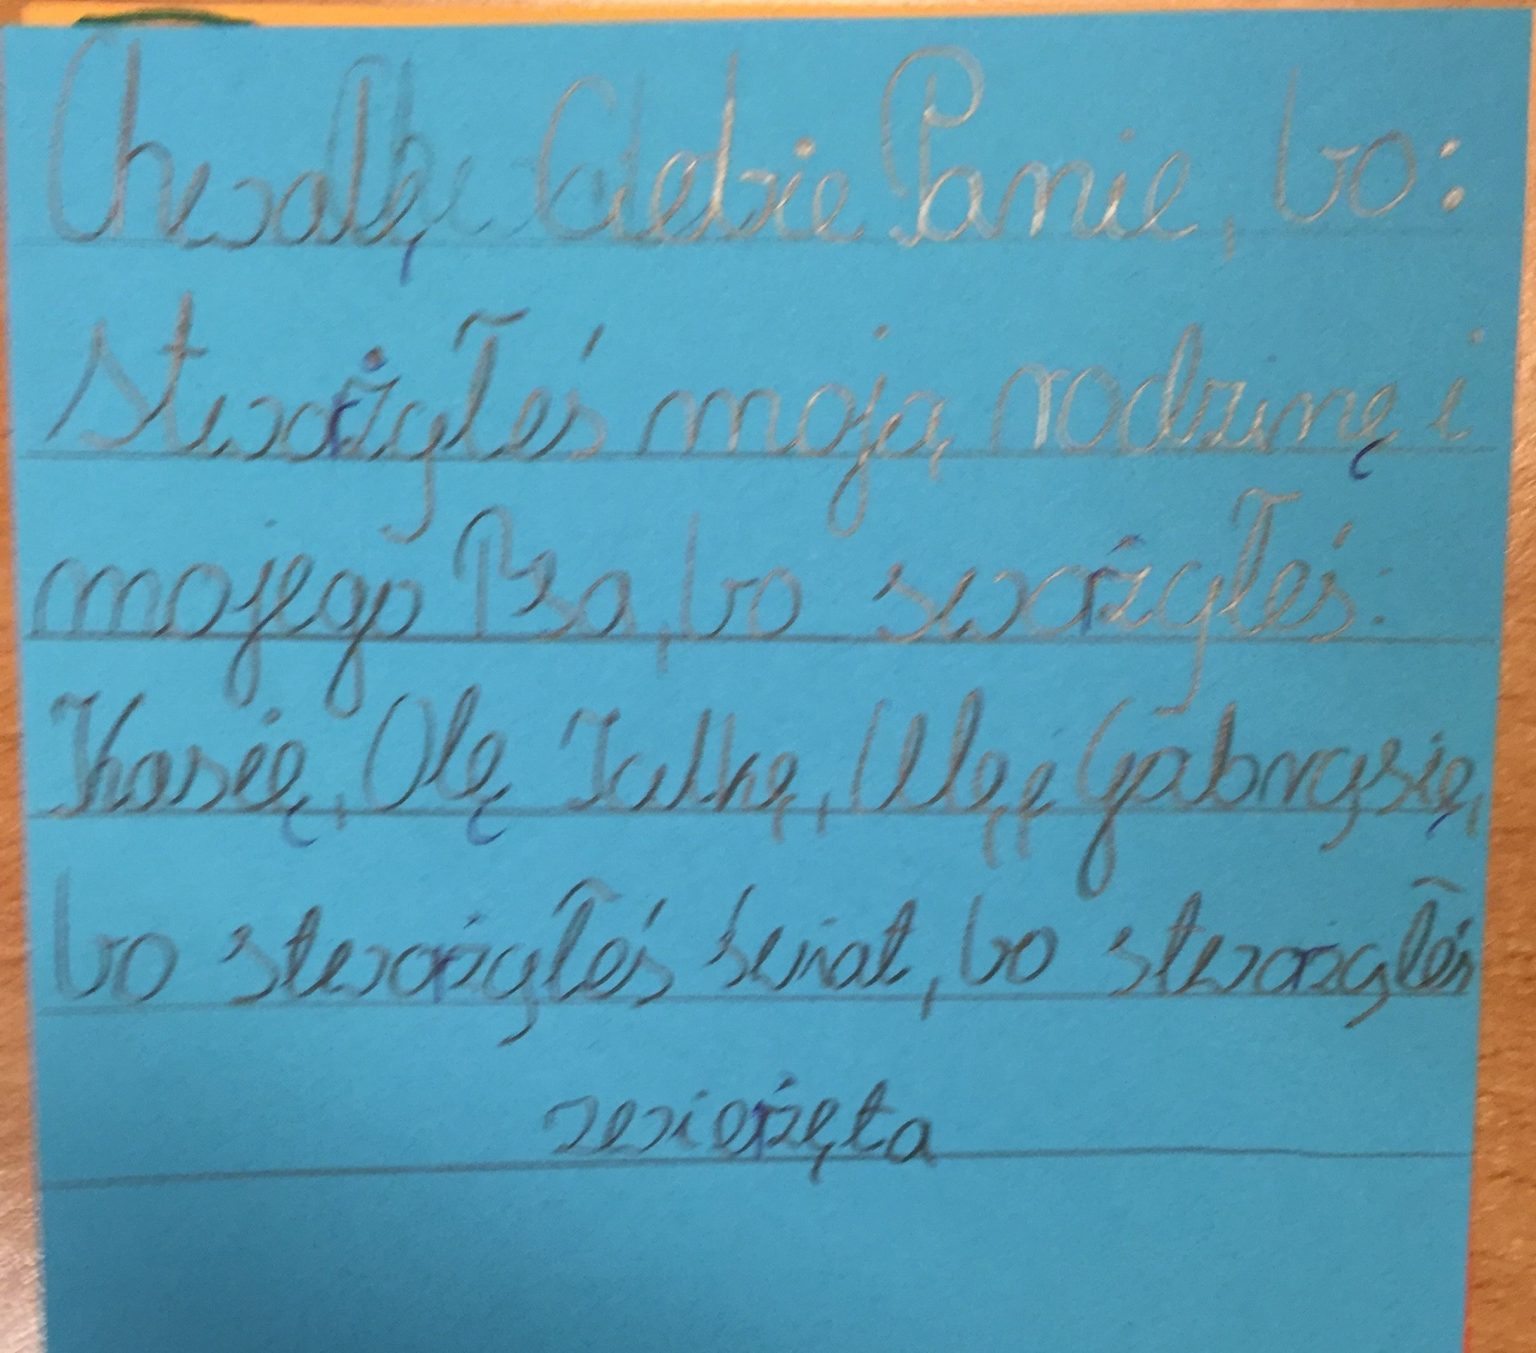 Chwalę Ciebie Panie, bo:
stworzyłeś moją rodzinę i
mojego Psa, bo sworzyłeś:
Kasię, Olę Julkę, Ulę, Gabrysię,
bo stworzyłeś świat, bo stworzyłeś
zwierzęta